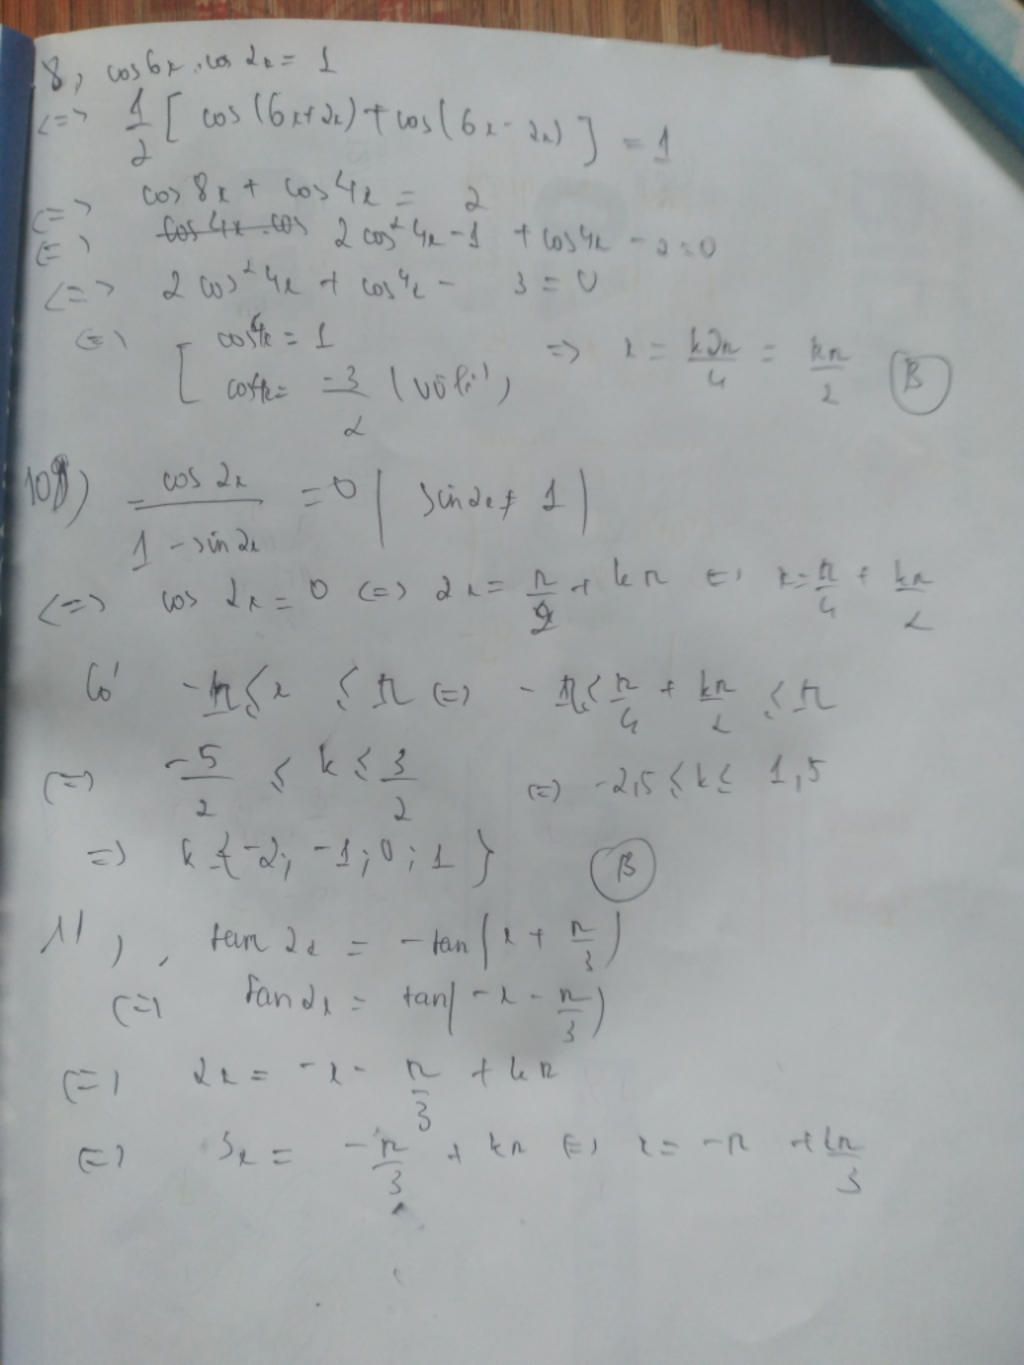 8, cos6x.cos 2x = 1
<=> 1/2 [ cos(6x+2x) + cos(6x - 2x) ] = 1
<=> cos 8x + cos 4x = 2
<=> 2 cos² 4x - 1 + cos 4x - 2 = 0
<=> 2 cos² 4x + cos 4x - 3 = 0
<=> [ cos4x = 1 => x = k2π/4 = kπ/2 (B)
cos4x = -3/2 (vô lí)
10) cos 2x / (1 - sin 2x) = 0 | sin2x ≠ 1 |
<=> cos 2x = 0 <=> 2x = π/2 + kπ <=> x = π/4 + kπ/2
Có -π ≤ x ≤ π <=> -π ≤ π/4 + kπ/2 ≤ π
<=> -5/2 ≤ k ≤ 3/2 <=> -2,5 ≤ k ≤ 1,5
=> k {-2; -1; 0; 1} (B)
11), tan 2x = -tan(x + π/3)
<=> tan 2x = tan(-x - π/3)
<=> 2x = -x - π/3 + kπ
<=> 3x = -π/3 + kπ <=> x = -π + kπ/3